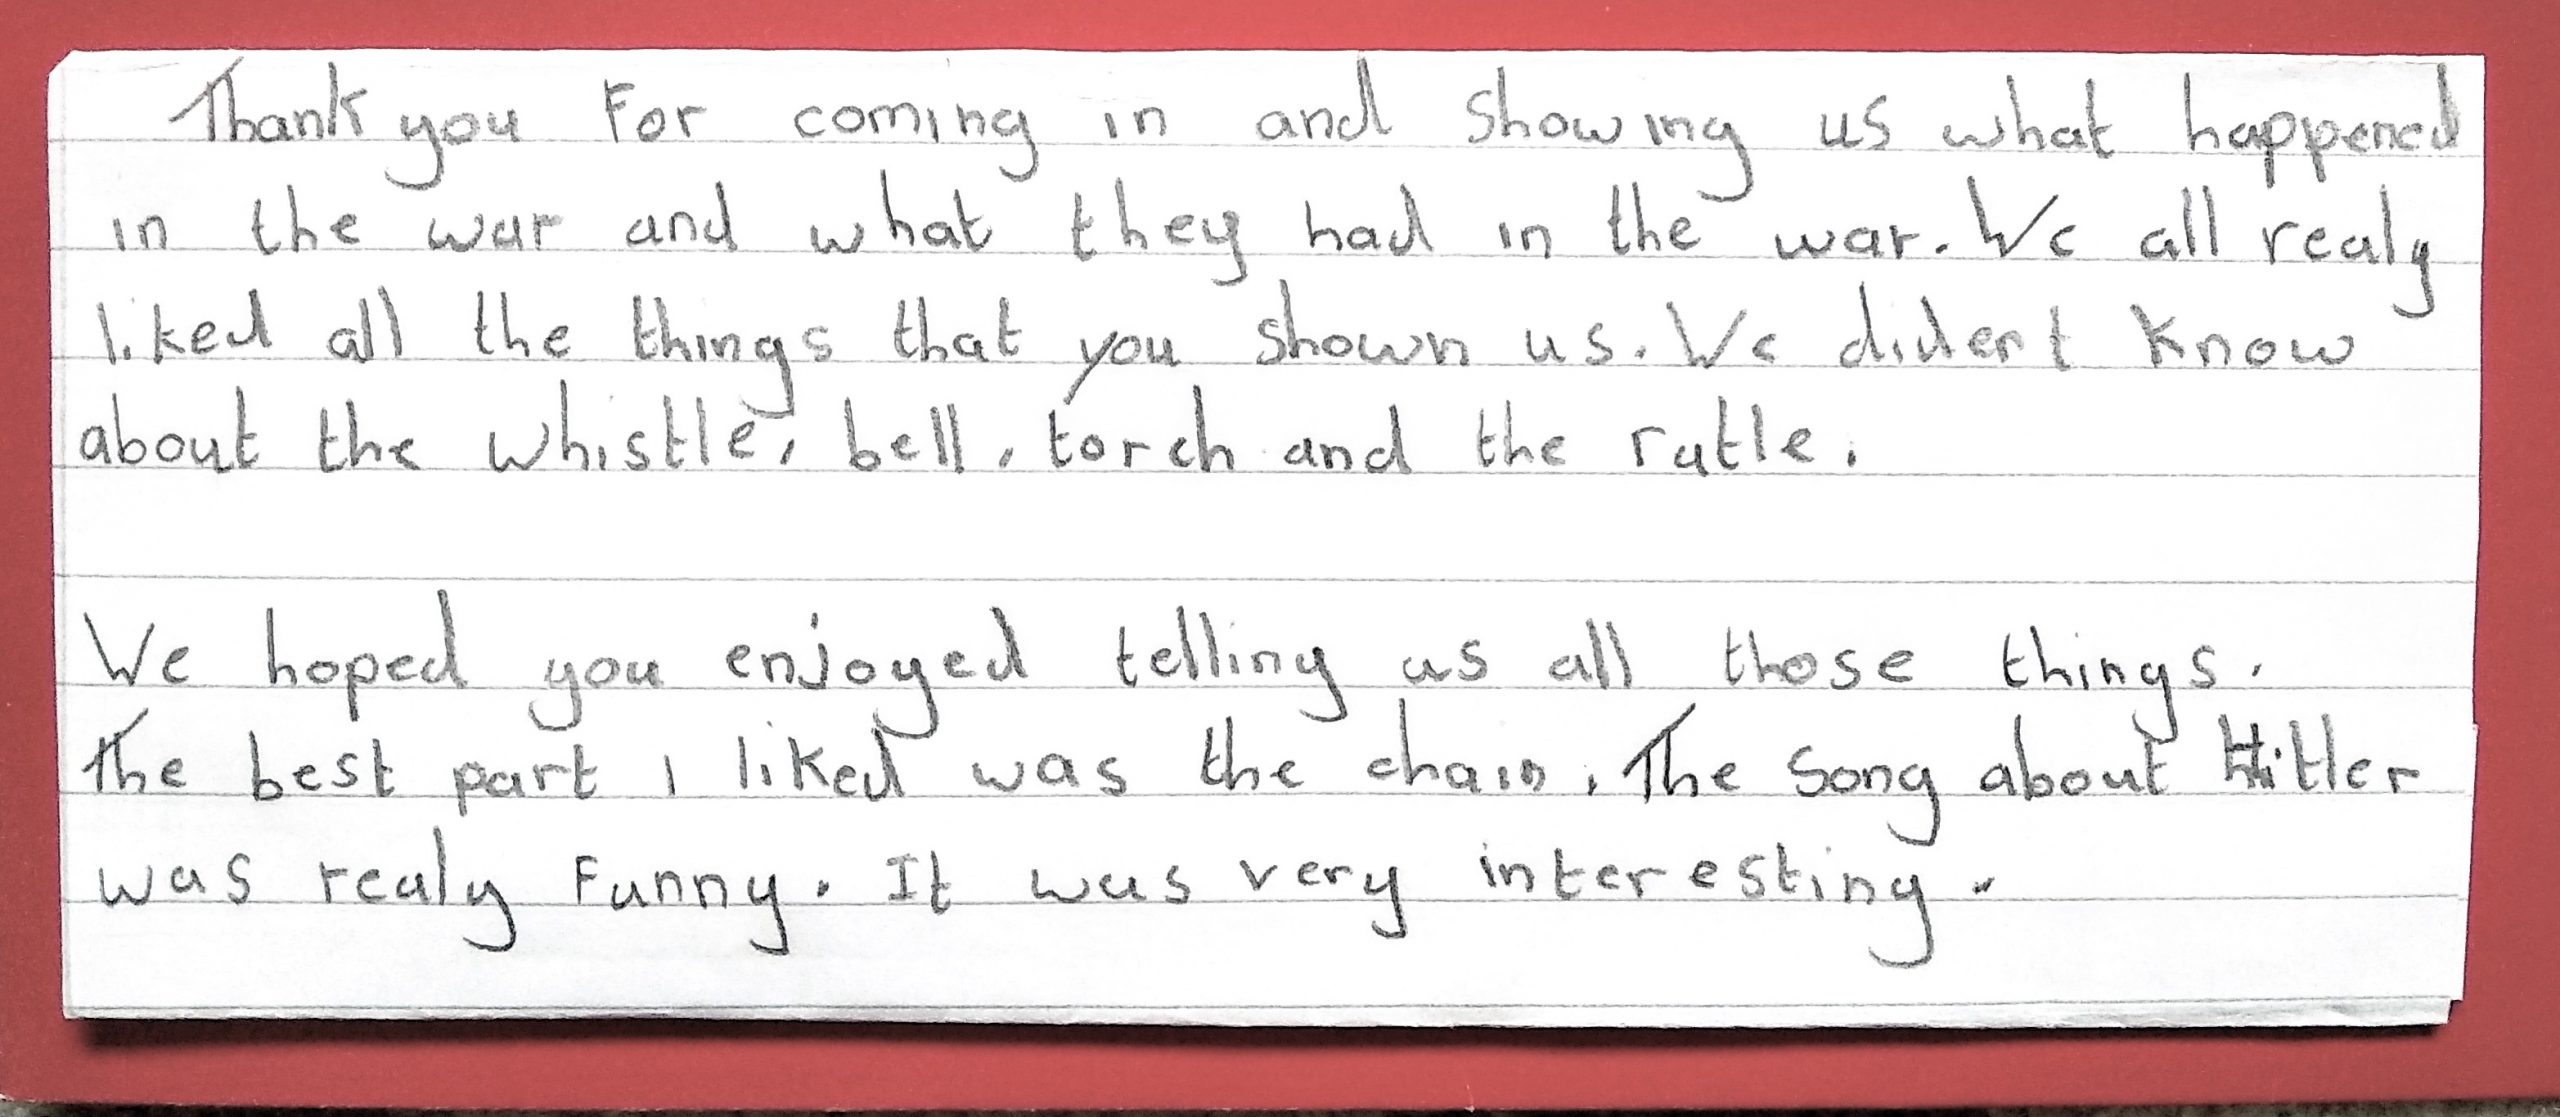 Thank you For coming in and Showing us what happened
in the war and what they had in the war. We all realy
liked all the things that you shown us. We didert know
about the whistle, bell, torch and the ratle.
We hoped you enjoyed telling us all those things.
The best part I liked was the chain. The Song about Hitler
was realy Funny. It was very interesting.